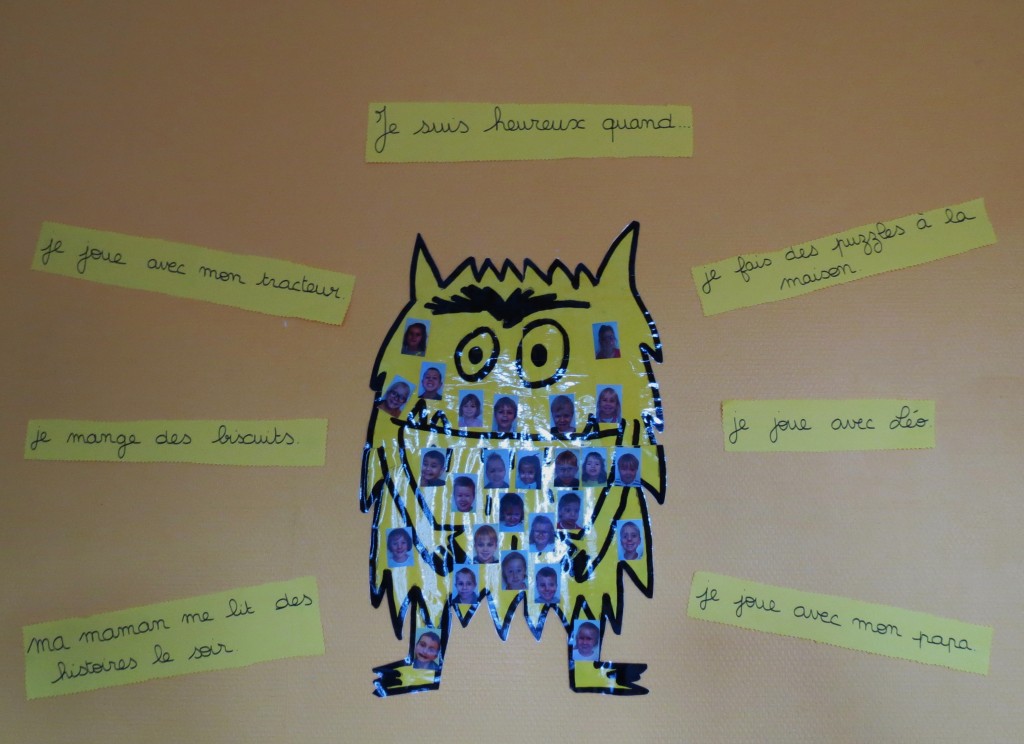 Je suis heureux quand...
je joue avec mon tracteur.
je fais des puzzles à la
maison.
je mange des biscuits.
je joue avec Léo.
ma maman me lit des
histoires le soir.
je joue avec mon papa.